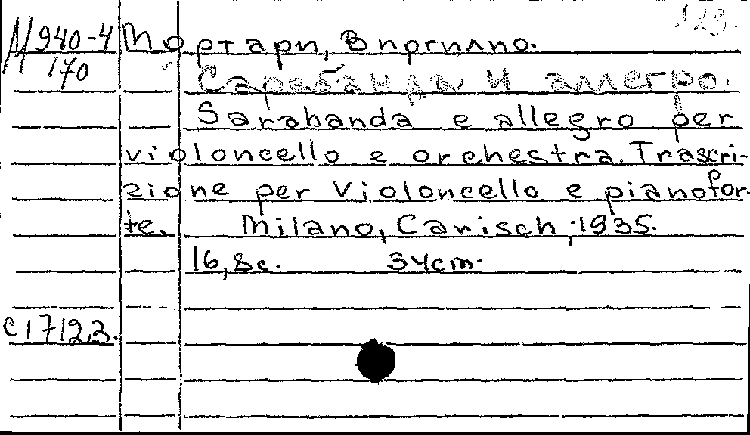 123.
М 940-4
170
Мортари, Виргилио.
Сарабанда и аллегро.
Sarabanda e allegro per
violoncello e orchestra. Trascri-
zione per violoncello e pianofor-
te. Milano, Carisch, 1935.
16,8с. 34cm.
с 17123.